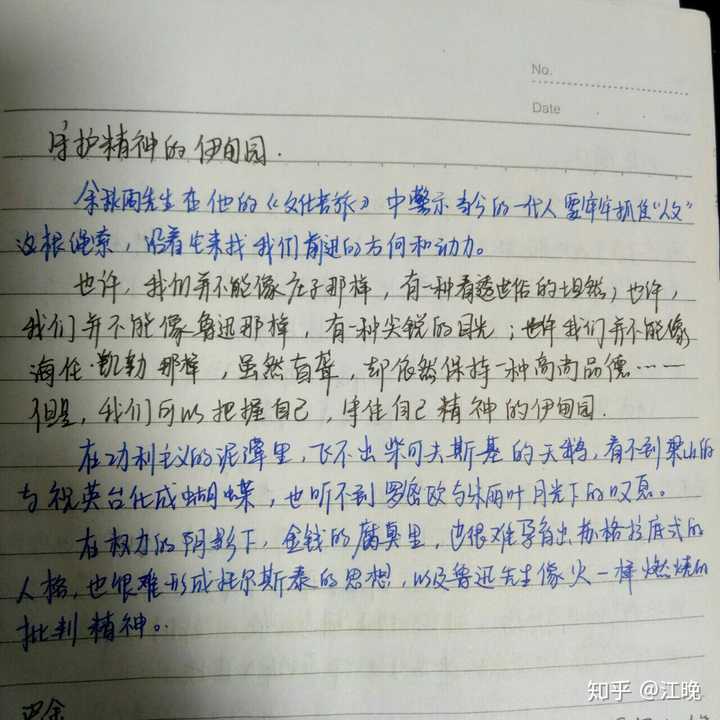 No.
Date
守护精神的伊甸园.
余秋雨先生在他的《文化苦旅》中警示当今的一代人要牢牢抓住“人文”
这根绳索，沿着它来找我们前进的方向和动力。
也许，我们并不能像庄子那样，有一种看透世俗的坦然；也许，
我们并不能像鲁迅那样，有一种尖锐的目光；也许我们并不能像
海伦·凯勒那样，虽然盲聋，却依然保持一种高尚品德……
但是，我们可以把握自己，守住自己精神的伊甸园.
在功利主义的泥潭里，飞不出柴可夫斯基的天鹅，看不到梁山伯
与祝英台化成蝴蝶，也听不到罗密欧与朱丽叶月光下的叹息。
在权力的阴影下，金钱的腐臭里，也很难孕育出苏格拉底式的
人格，也很难形成托尔斯泰的思想，以及鲁迅先生像火一样燃烧的
批判精神。
知乎 @江晚